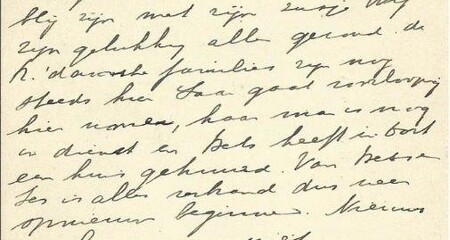 blij zijn met zijn zusje. Wij
zijn gelukkig allen gezond. de
R.'damsche families zijn nog
steeds hier Saar gaat voorloopig
hier wonen, haar man is nog
in dienst en Bets heeft in Dort
een huis gehuurd. Van
is alles verbrand dus weer
opnieuw beginnen. Nieuws